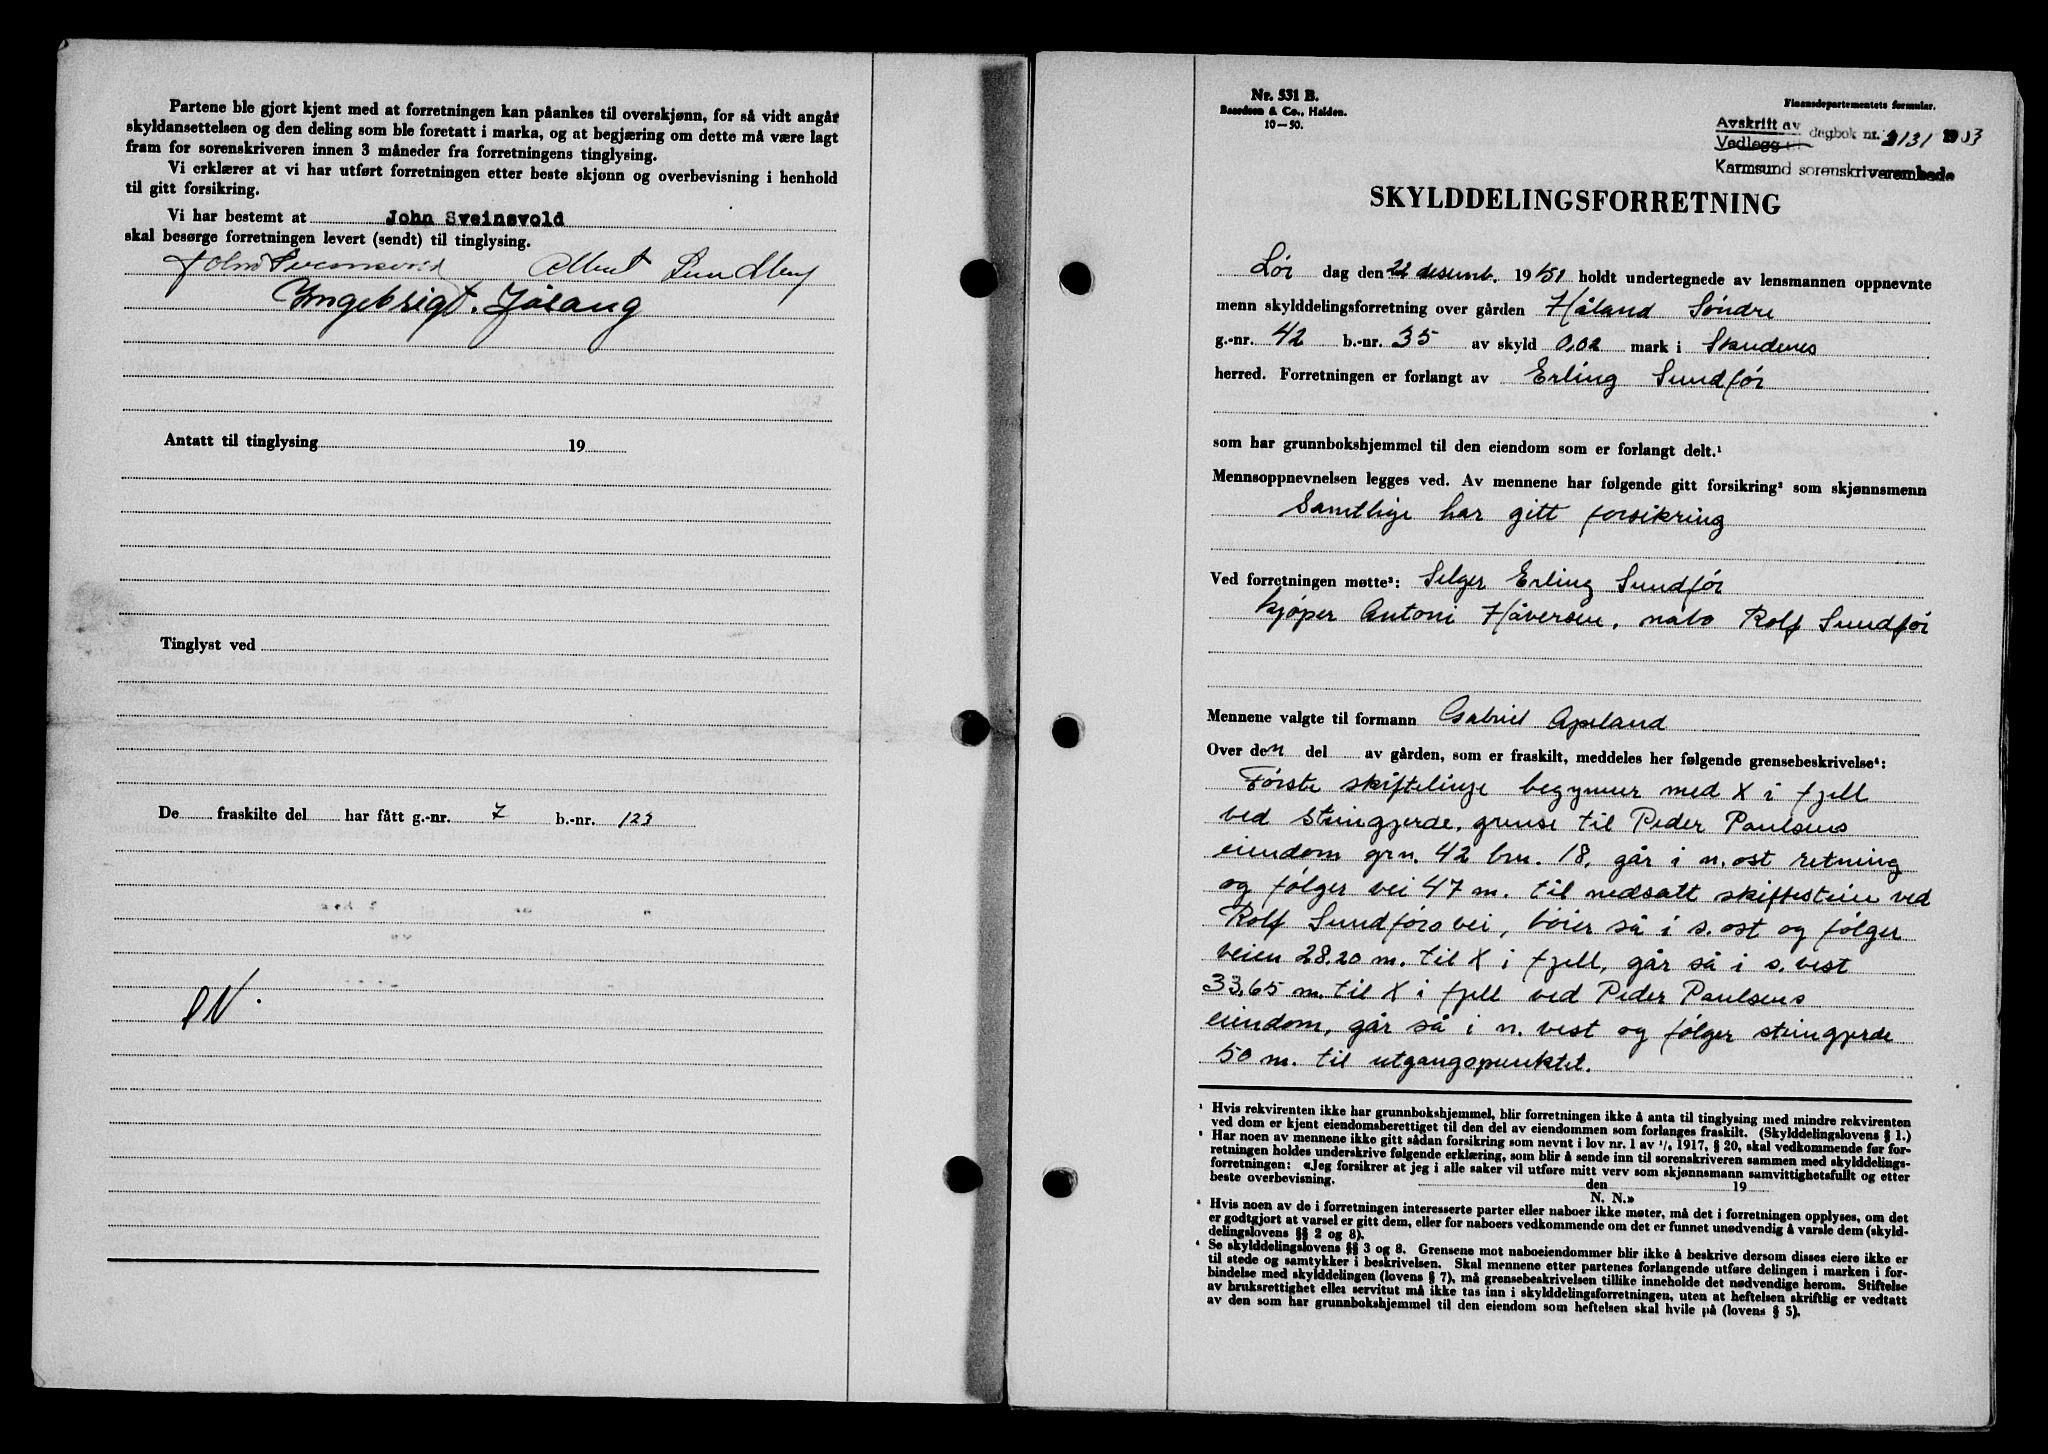 Partene ble gjort kjent med at forretningen kan påankes til overskjønn, for så vidt angår
skyldansettelsen og den deling som ble foretatt i marka, og at begjæring om dette må være lagt
fram for sorenskriveren innen 3 måneder fra forretningens tinglysing.
Vi erklærer at vi har utført forretningen etter beste skjønn og overbevisning i henhold
til gitt forsikring.
Vi har bestemt at John Sveinsvold
skal besørge forretningen levert (sendt) til tinglysing.
John Sveinsvold Albert Sundberg
Ingebrigt. Jösang
Antatt til tinglysing 19
Tinglyst ved
De fraskilte del har fått g.-nr. 7 b.-nr. 123
Nr. 531 B.
& Co., Halden.
10—50.
Finansdepartementets formular.
Avskrift av
Vedlegg til dagbok nr. 2131
Karmsund sorenskriverembede
SKYLDDELINGSFORRETNING
Lør dag den 22 desemb. 1951 holdt undertegnede av lensmannen oppnevnte
menn skylddelingsforretning over gården Håland Søndre
g.-nr. 42 b.-nr. 35 av skyld 0,02 mark i Skudenes
herred. Forretningen er forlangt av Erling Sundfør
som har grunnbokshjemmel til den eiendom som er forlangt delt.¹
Mennsoppnevnelsen legges ved. Av mennene har følgende gitt forsikring² som skjønnsmenn
Samtlige har gitt forsikring
Ved forretningen møtte³: Selger Erling Sundfør
kjøper Antoni Håversen, nabo Rolf Sundfør
Mennene valgte til formann Gabriel Apeland
Over den del av gården, som er fraskilt, meddeles her følgende grensebeskrivelse⁴:
Første skiftelinje begynner med X i fjell
ved steingjerde, grense til Peder Paulsens
eiendom grn. 42 bn. 18, går i n. ost retning
og følger vei 47 m. til nedsatt skiftestein ved
Rolf Sundførs vei, bøier så i s. ost og følger
veien 28.20 m. til X i fjell, går så i s. vest
33.65 m. til X i fjell ved Peder Paulsens
eiendom, går så i n. vest og følger steingjerde
50 m. til utgangspunktet.
¹ Hvis rekvirenten ikke har grunnbokshjemmel, blir forretningen ikke å anta til tinglysing med mindre rekvirenten
ved dom er kjent eiendomsberettiget til den del av eiendommen som forlanges fraskilt. (Skylddelingslovens § 1.)
Har noen av mennene ikke gitt sådan forsikring som nevnt i lov nr. 1 av 1917, § 20, skal vedkommende før for-
retningen holdes underskrive følgende erklæring, som blir å sende inn til sorenskriveren sammen med skylddelings-
forretningen: «Jeg forsikrer at jeg i alle saker vil utføre mitt verv som skjønnsmann samvittighetsfullt og etter
beste overbevisning. den 19
N. N.»
Hvis noen av de i forretningen interesserte parter eller naboer ikke møter, må det i forretningen opplyses, om det
er godtgjort at varsel er gitt dem, eller for naboers vedkommende om det er funnet unødvendig å varsle dem (skyld-
delingslovens §§ 2 og 8).
⁴ Se skylddelingslovens §§ 3 og 8. Grensene mot naboeiendommer blir ikke å beskrive dersom disses eiere ikke er
til stede og samtykker i beskrivelsen. Skal mennene etter partenes forlangende utføre delingen i marken i for-
bindelse med skylddelingen (lovens § 7), må grensebeskrivelsen tillike inneholde det nødvendige herom. Stiftelse
av bruksrettighet eller servitut må ikke tas inn i skylddelingsforretningen, uten at heftelsen skriftlig er vedtatt
av den som har grunnbokshjemmel til den eiendom som heftelsen skal hvile på (lovens § 5).